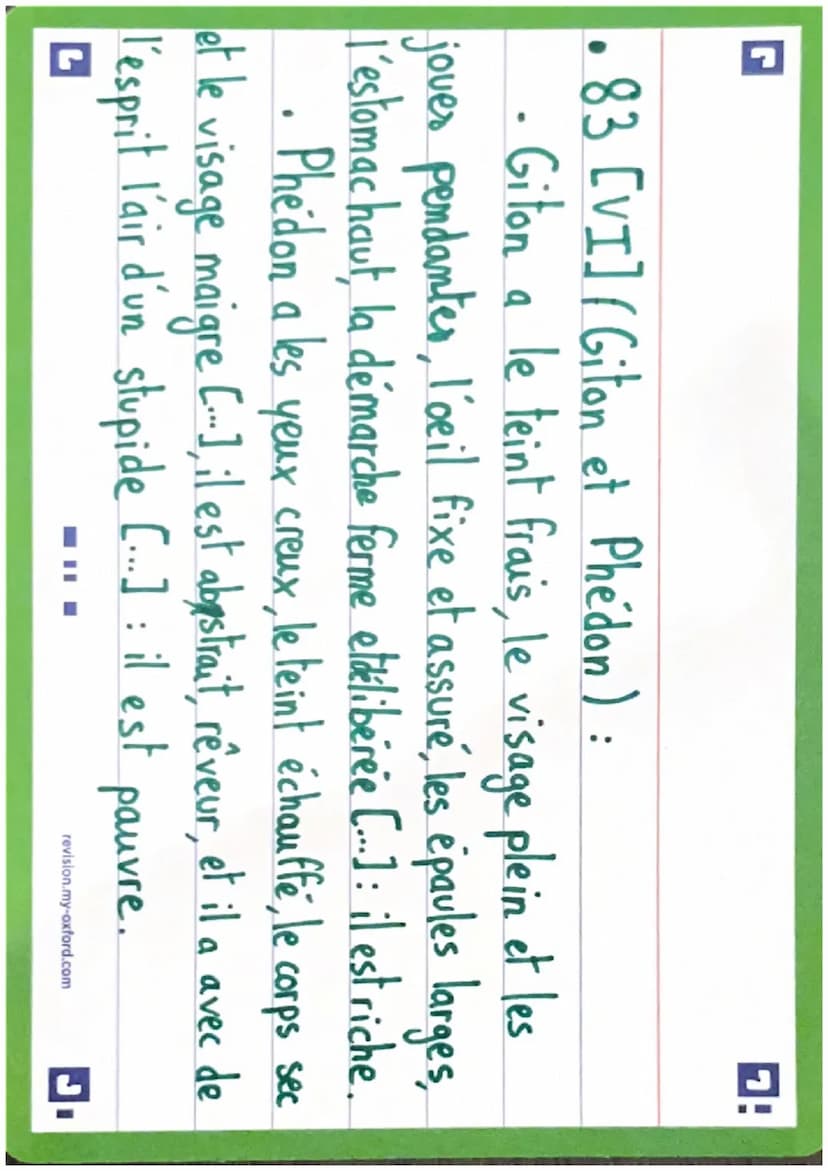 • 83 [VI] (Giton et Phédon) :
• Giton a le teint frais, le visage plein et les
joues pendantes, l'œil fixe et assuré, les épaules larges,
l'estomac haut, la démarche ferme et délibérée [...] : il est riche.
• Phédon a les yeux creux, le teint échauffé, le corps sec
et le visage maigre [...], il est abstrait, rêveur, et il a avec de
l'esprit l'air d'un stupide [...] : il est pauvre.
revision.my-oxford.com